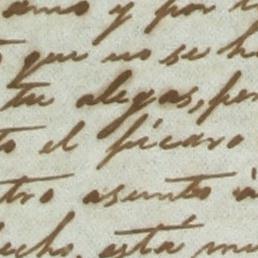 amo y por
que no se h
tu alegas, per
to el pícaro
tro asunto á
echo, está mu